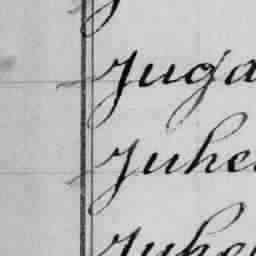 Juga
Juhe
Juhe